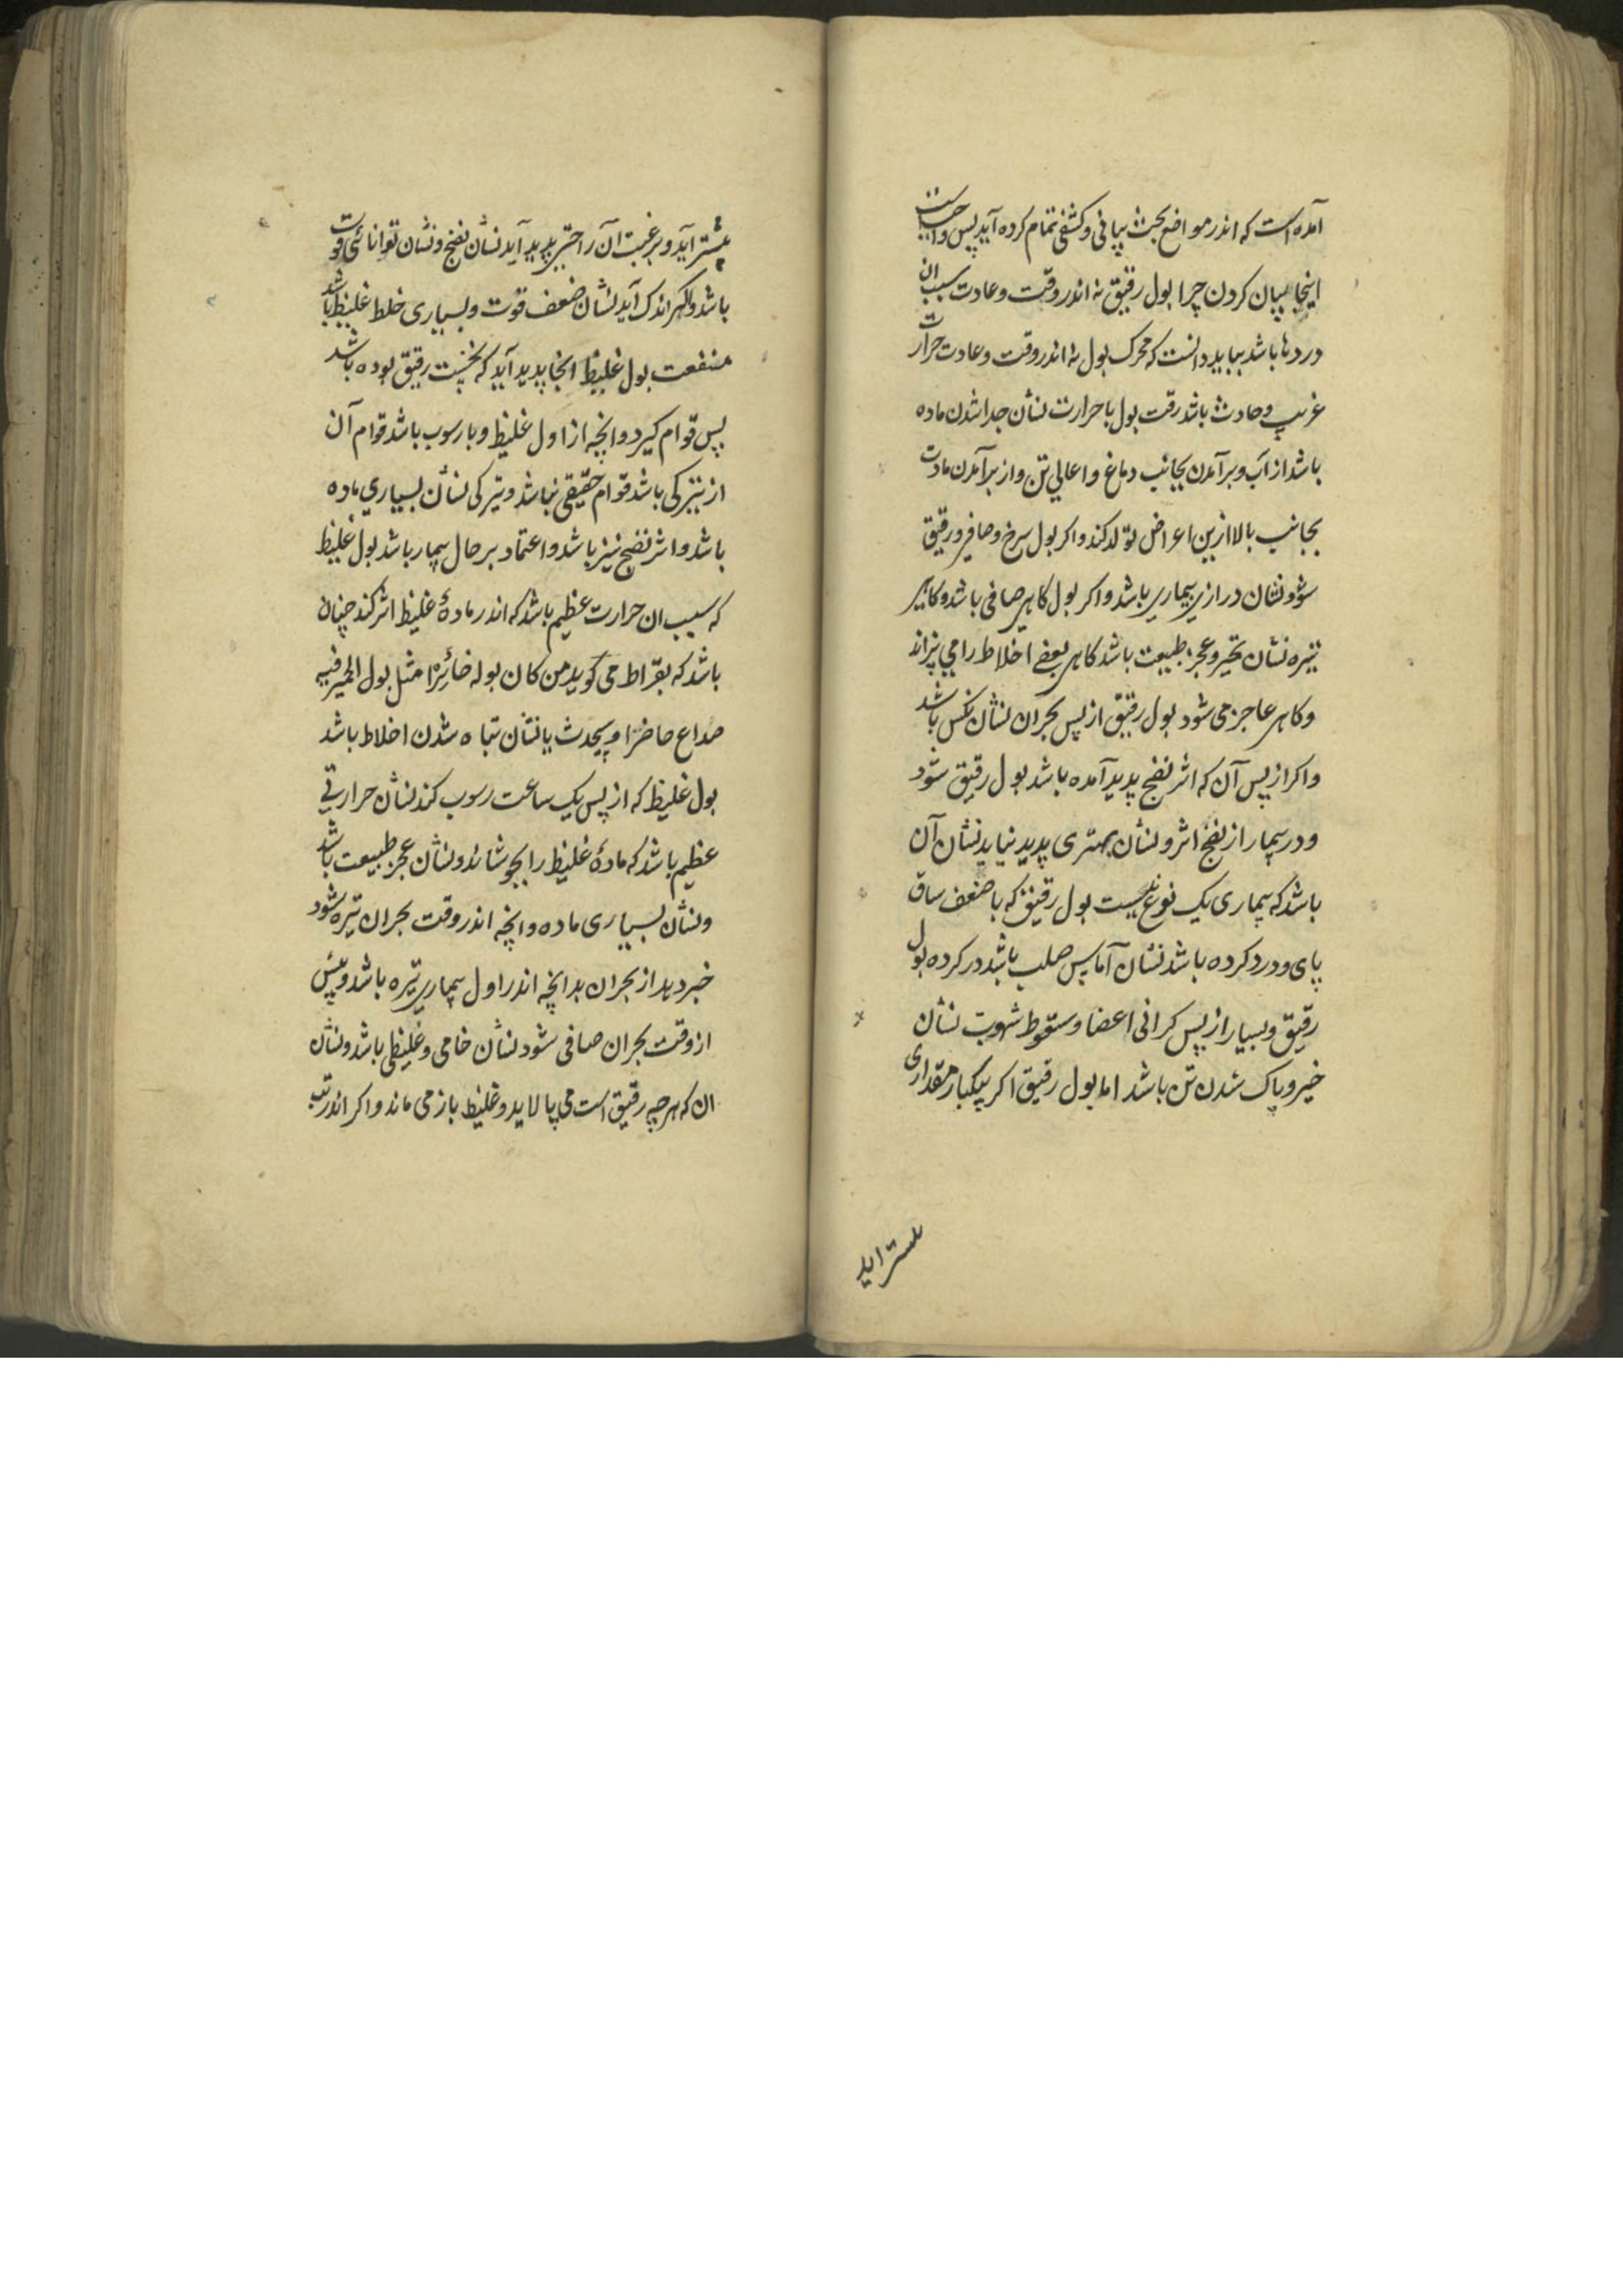 آمده است که اندر مواضع بحث بیافی وکشفی تمام کرده آید پس واجبست
اینجا بیان کردن چرا بول رقیق نه اندر وقت وعادت سبب ان
دردها باشد بباید دانست که محرک بول نه اندر وقت وعادت حرارت
غریب وحادث باشد رقت بول با حرارت نشان جدا شدن ماده
باشد از آب وبرآمدن بجانب دماغ واعالی تن واز برآمدن مادت
بجانب بالا ازین اعراض تولد کند واکر بول سرخ وصافی ورقیق
شود نشان درازی بیماری باشد واکر بول کاهی صافی باشد وکاهی
تیره نشان تحیر وعجز طبیعت باشد کاهی بعضی اخلاط را می پزاند
وکاهی عاجز می شود بول رقیق از پس بحران نشان نکس باشد
واکر از پس آن که اثر نضج پدید آمده باشد بول رقیق شود
ودر بیمار از نضج اثر ونشان بهتری پدید نیاید نشان آن
باشد که بیماری یک نوع نیست بول رقیق که با ضعف ساق
پای ودرد کرده باشد نشان آماس صلب باشد در کرده بول
رقیق وبسیار از پس کرانی اعضا وسقوط شهوت نشان
خیر وپاک شدن تن باشد اما بول رقیق اکر بیکبار مقداری
بیشتر اید
بیشتر آید وبر عقب ان راحتی پدید آید نشان نضج ونشان توانائی قوت
باشد واکر اندک آید نشان ضعف قوت وبسیاری خلط غلیظ باشد
منفعت بول غلیظ انجا پدید آید که نخست رقیق بوده باشد
پس قوام کیرد وانچه از اول غلیظ وبا رسوب باشد قوام آن
از تیرکی باشد قوام حقیقی نباشد وتیرکی نشان بسیاری ماده
باشد واثر نضج نیز باشد واعتماد بر حال بیمار باشد بول غلیظ
که سبب ان حرارت عظیم باشد که اندر مادهٔ غلیظ اثر کند چنان
باشد که بقراط می کوید من کان بوله خائرًا مثل بول الحمیر فبه
صداع حاضرا ویحدث یا نشان تباه شدن اخلاط باشد
بول غلیظ که از پس یک ساعت رسوب کند نشان حرارتی
عظیم باشد که مادهٔ غلیظ را بجوشاند ونشان عجز طبیعت باشد
ونشان بسیاری ماده وانچه اندر وقت بحران تیره شود
خبر دهد از بحران بد انچه اندر اول بیماری تیره باشد وپیش
از وقت بحران صافی شود نشان خامی وغلیظی باشد ونشان
ان که هرچه رقیق است می پالاید وغلیظ باز می ماند واکر اندر تب